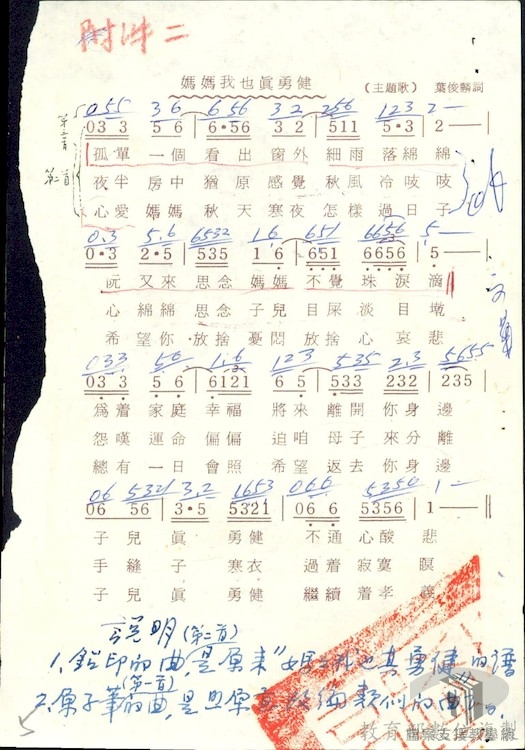 附件二
媽媽我也眞勇健
(主題歌) 葉俊麟詞
055 36 656 32 256 123 2—
第一首 033 56 6·56 32 511 5·3 2—
第二首
孤單 一個 看出 窗外 細雨 落綿綿
夜半 房中 猶原 感覺 秋風 冷吱吱
心愛 媽媽 秋天 寒夜 怎樣 過日子
0.3 5.6 6532 16 651 6656 5—
0·3 2·5 535 16 651 6656 5·
阮 又來 思念 媽媽 不覺 珠淚滴
心 綿綿 思念 子兒 目屎 淡目墘
希 望你 放捨 憂悶 放捨 心哀悲
033 56 1.6 123 535 2.3 5655
033 56 6121 65 533 232 235
爲着 家庭 幸福 將來 離開 你身邊
怨嘆 運命 偏偏 迫咱 母子 來分離
總有 一日 會照 希望 返去 你身邊
06 5321 3.2 1653 066 5350 1—
06 56 3·5 5321 06 6 5356 1—
子兒 眞 勇健 不通 心酸悲
手縫 子 寒衣 過着 寂寞暝
子兒 眞 勇健 繼續 着孝
說明
(第二首)
1. 鉛印的曲,是原來"媽媽我也真勇健"的譜
(第一首)
2. 原子筆的曲是
教育部數